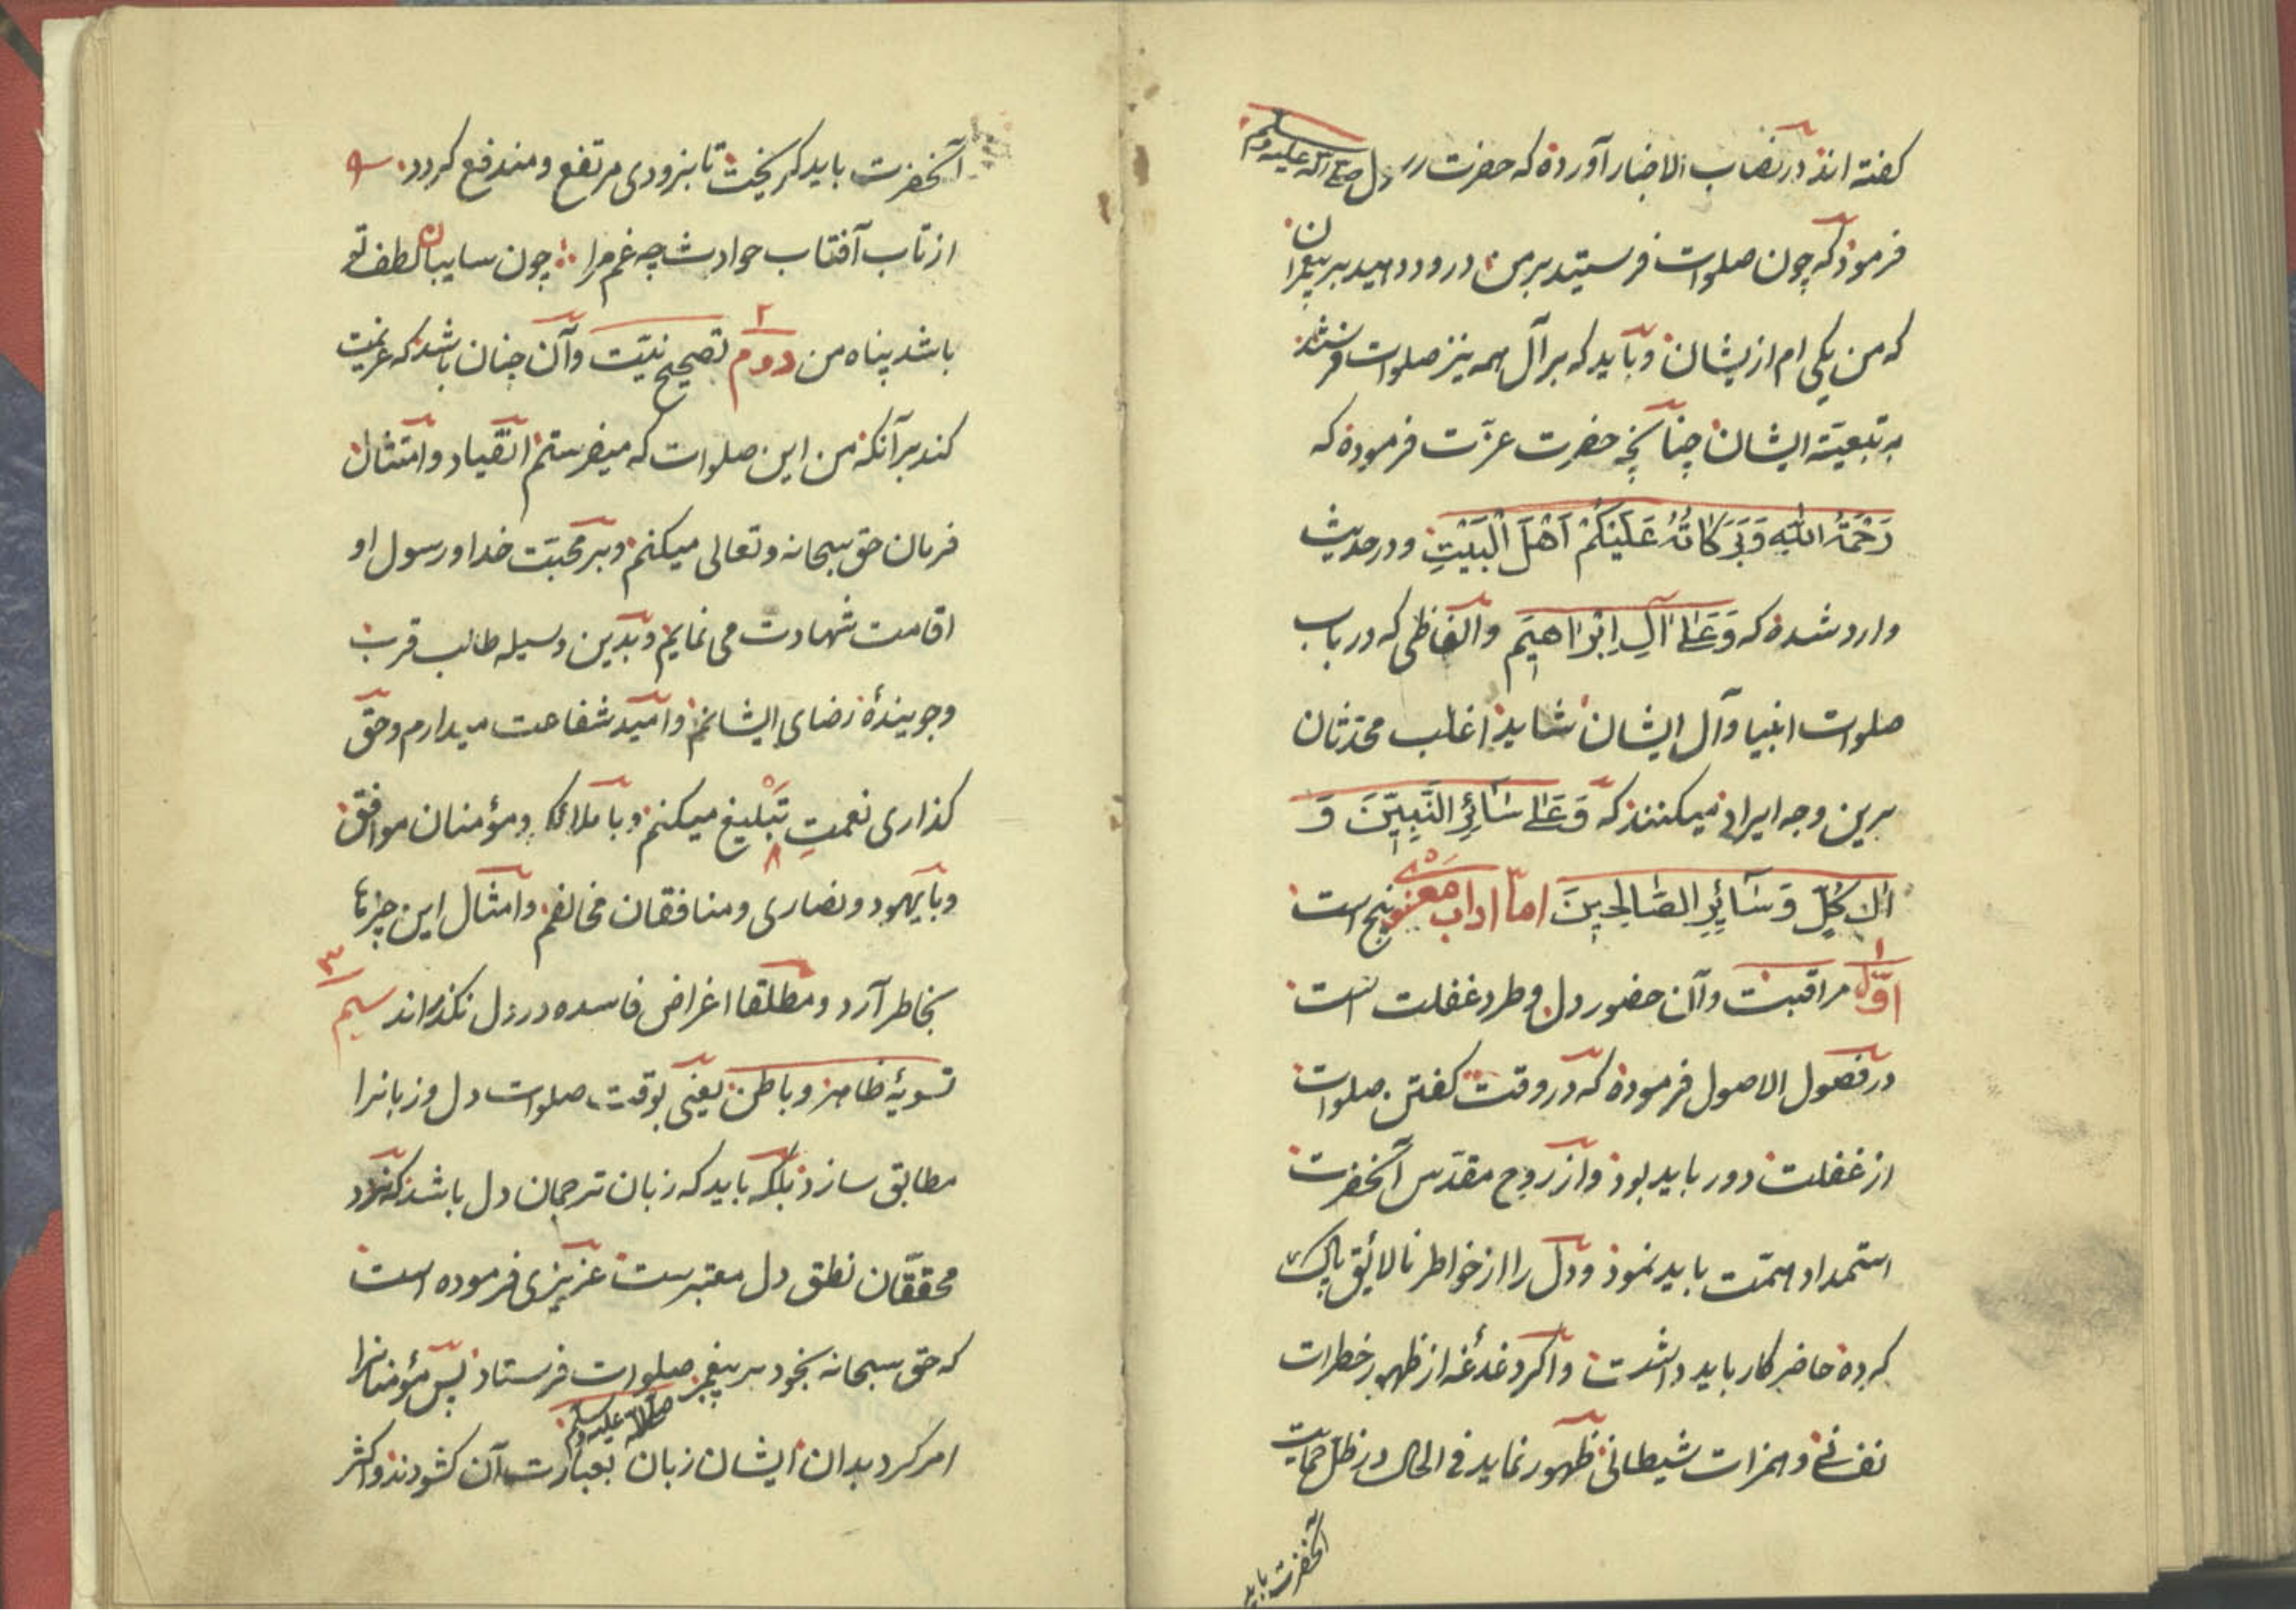 گفته اند در نصاب الاخبار آورده که حضرت رسول صلی الله علیه وسلم
فرمود که چون صلوات فرستید بر من درود دهید بر پیغمبران
که من یکی ام از یشان و باید که بر آل همه نیز صلوات فرستند
به تبعیّة ایشان چنانچه حضرت عزّت فرموده که
رَحْمَةُ اللّٰهِ وَبَرَكَاتُهُ عَلَيْكُمْ اَهْلَ الْبَيْتِ و در حدیث
وارد شده که وَعَلٰى اٰلِ اِبْرَاهِيمَ و الفاظی که در باب
صلوات انبیا و آل ایشان شاید اغلب محدّثان
برین وجه ایراد میکنند که وَعَلٰى سَائِرِ النَّبِيّنَ وَ
اٰلِ كُلٍّ وَسَآئِرِ الصَّالِحِينَ امّا اداب معنوی پنج است
اوّل مراقبت و آن حضور دل و طرد غفلت است
در فصول الاصول فرموده که در وقت گفتن صلوات
از غفلت دور باید بود و از روح مقدّس آنحضرت
استمداد همّت باید نمود و دل را از خواطر نالائق پاک
کرده حاضر کار باید داشت و اگر دغدغه از ظهور خطرات
نفسانی و همزات شیطانی ظهور نماید فی الحال در ظل حمایت
آنحضرت باید
آنحضرت باید گریخت تا بزودی مرتفع و مندفع گردد
از تاب آفتاب حوادث چه غم مرا چون سایبان لطف تو
باشد پناه من دوم ۲ تصحیح نیّت و آن چنان باشد که عزیمت
کند بر آنکه من این صلوات که میفرستم انقیاد و امتثال
فرمان حق سبحانه و تعالی میکنم و بر محبّت خدا و رسول او
اقامت شهادت می نمایم و بدین وسیله طالب قرب
و جویندهٔ رضای ایشانم و امید شفاعت میدارم و حقّ
گذاری نعمتِ تبلیغ میکنم و با ملائکه و مؤمنان موافق
و با یهود و نصاری و منافقان مخالفم و امثال این چیزها
بخاطر آرد و مطلقا اغراض فاسده در دل نگذراند سیم ۳
تسویهٔ ظاهر و باطن یعنی بوقت صلوات دل و زبانرا
مطابق سازد بلکه باید که زبان ترجمان دل باشد که نزد
محققان نطق دل معتبرست عزیزی فرموده است
که حق سبحانه بخود بر پیغمبر صلوات فرستاد پس مؤمنانرا
صلی الله علیه وسلم
امر کرد بدان ایشان زبان بعبارت آن کشودند و اکثر